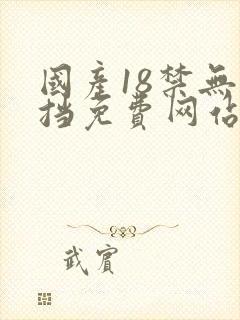 國產18禁無
挡免費网佔
武賓